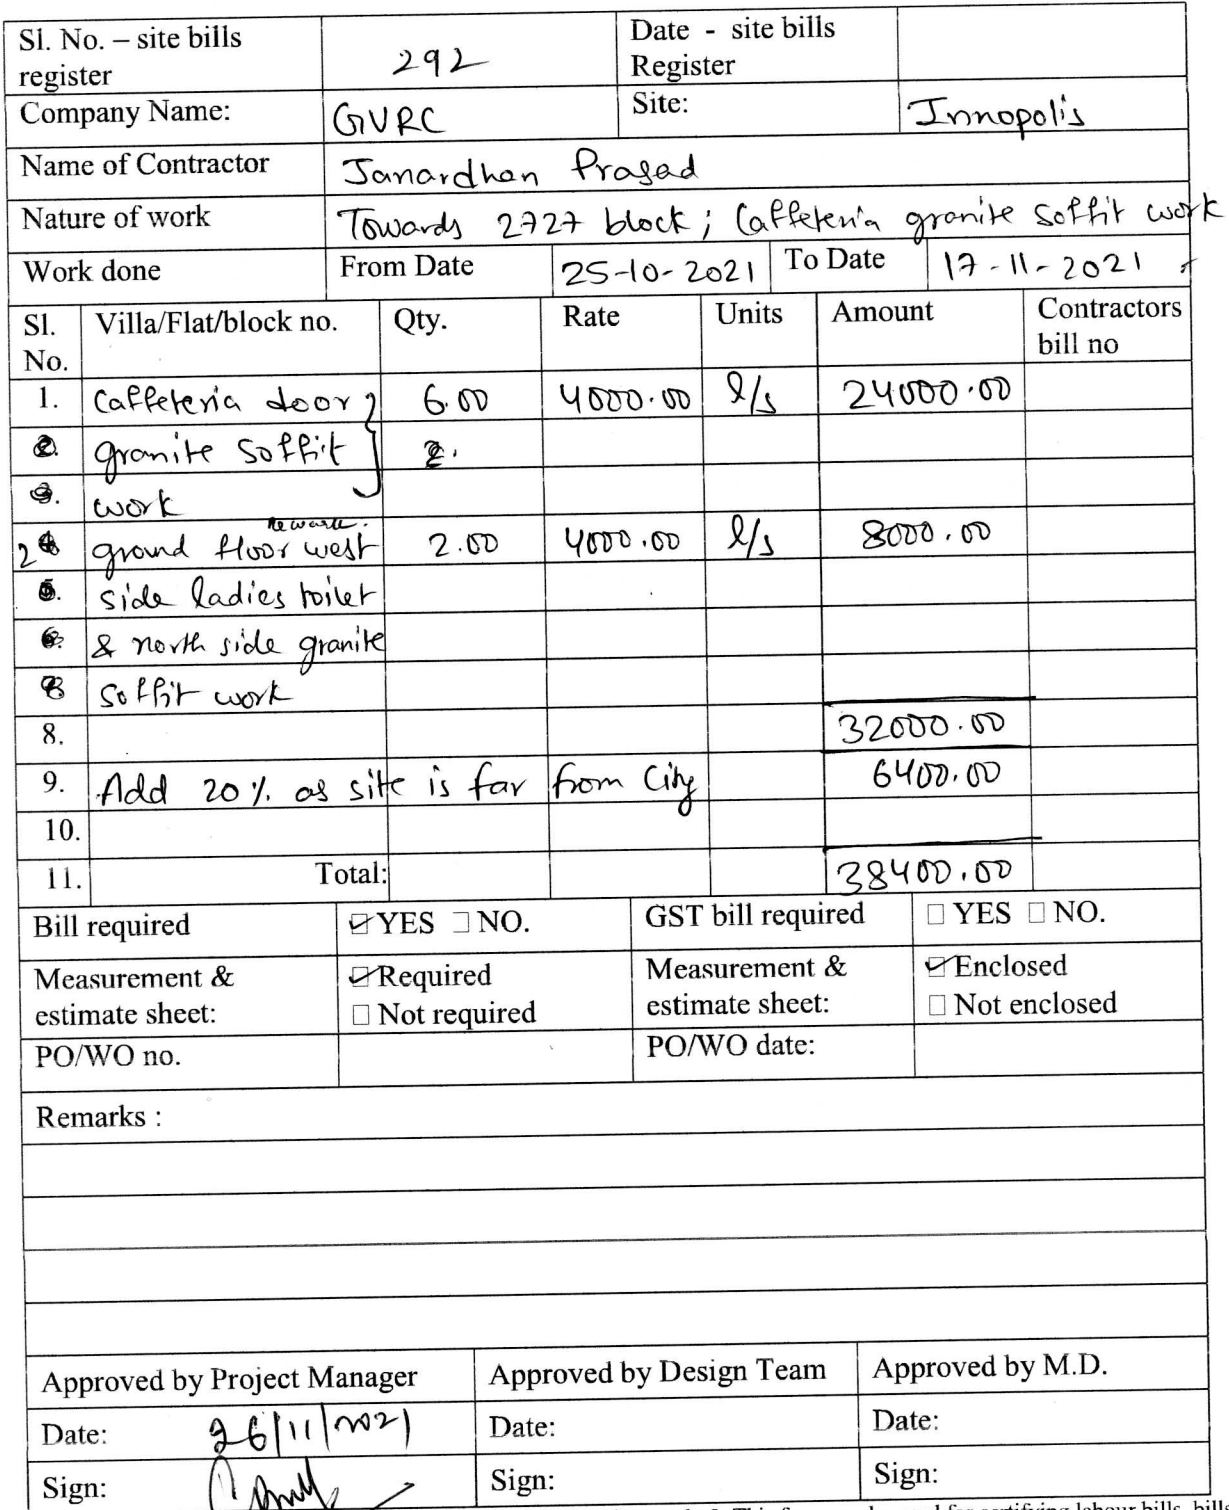 Sl. No. – site bills register 292 Date - site bills Register
Company Name: GVRC Site: Innopolis
Name of Contractor Janardhan Prasad
Nature of work Towards 2727 block; Caffeteria granite soffit work
Work done From Date 25-10-2021 To Date 17-11-2021
Sl. No. Villa/Flat/block no. Qty. Rate Units Amount Contractors bill no
1. Caffeteria door 6.00 4000.00 l/s 24000.00
granite soffit
work
2 ground floor west 2.00 4000.00 l/s 8000.00
side ladies toilet
& north side granite
soffit work
8. 32000.00
9. Add 20% as site is far from city 6400.00
10.
11. Total: 38400.00
Bill required ☑ YES ☐ NO. GST bill required ☐ YES ☐ NO.
Measurement & estimate sheet: ☑ Required ☐ Not required Measurement & estimate sheet: ☑ Enclosed ☐ Not enclosed
PO/WO no. PO/WO date:
Remarks :
Approved by Project Manager Approved by Design Team Approved by M.D.
Date: 26/11/2021 Date: Date:
Sign: Sign: Sign: